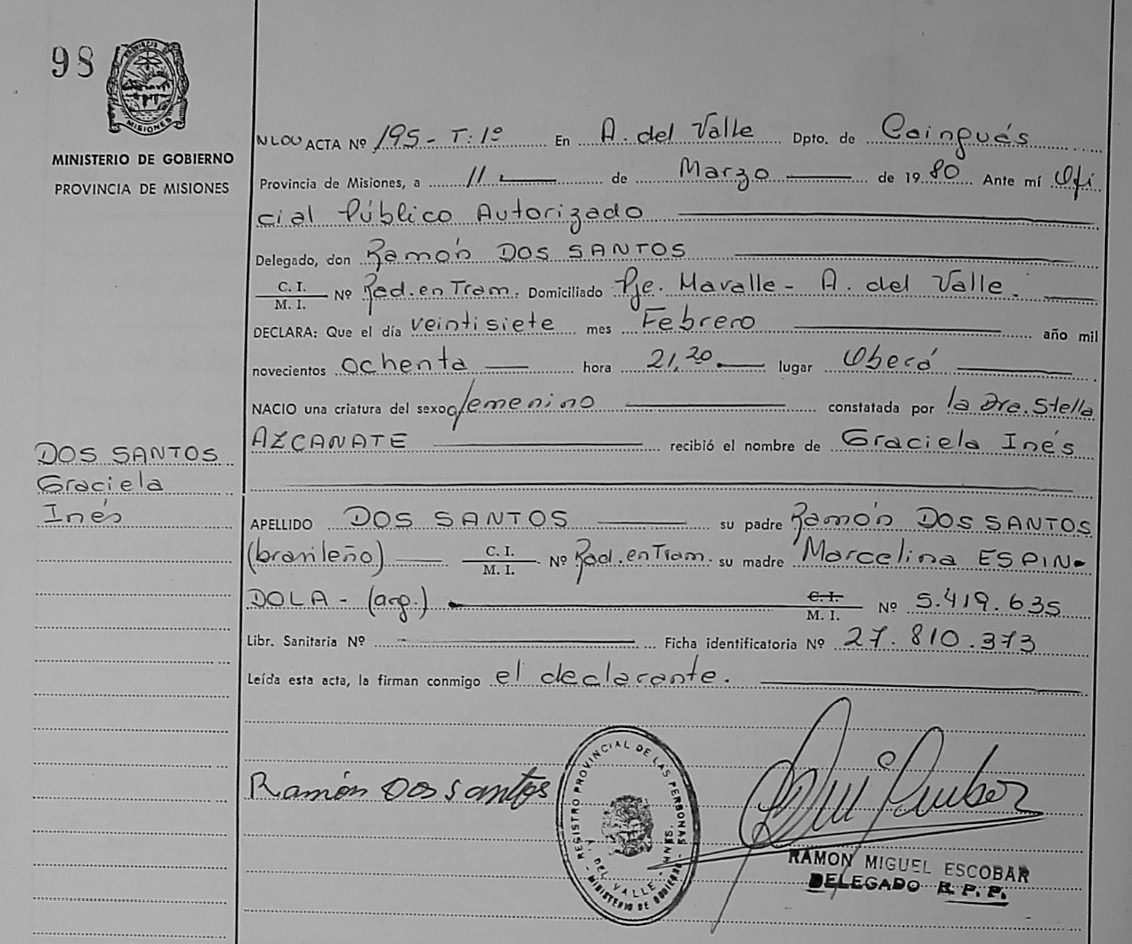 98
MISIONES
MINISTERIO DE GOBIERNO
PROVINCIA DE MISIONES
ACTA Nº 195 - T: 1º En A. del Valle Dpto. de Caingués
Provincia de Misiones, a 11 de Marzo de 1980 Ante mí Ofi
cial Público Autorizado
Delegado, don Ramón DOS SANTOS
C. I.
M. I. Nº Rad. en Tram. Domiciliado Pje. Mavalle - A. del Valle.
DECLARA: Que el día veintisiete mes Febrero año mil
novecientos ochenta hora 21,20 lugar Oberá
NACIO una criatura del sexo femenino constatada por la Dra. Stella
AZCANATE recibió el nombre de Graciela Inés
DOS SANTOS
Graciela
Inés
APELLIDO DOS SANTOS su padre Ramón DOS SANTOS
(brasileño) C. I.
M. I. Nº Rad. en Tram. su madre Marcelina ESPIN-
DOLA - (arg.) C. I.
M. I. Nº 5.419.635
Libr. Sanitaria Nº Ficha identificatoria Nº 27.810.373
Leída esta acta, la firman conmigo el declarante.
Ramón Dos Santos
REGISTRO PROVINCIAL DE LAS PERSONAS
A. DEL VALLE - MNES.
MINISTERIO DE GOBIERNO
RAMON MIGUEL ESCOBAR
DELEGADO R. P. P.